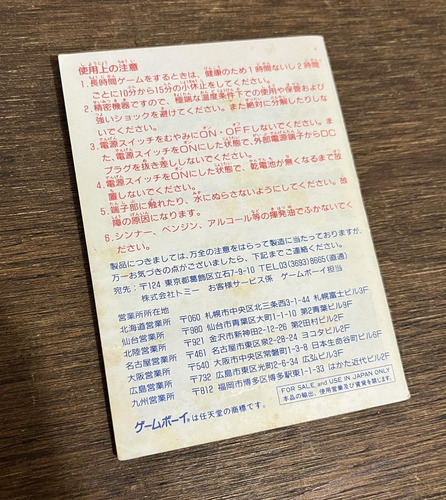 使用上の注意
1.長時間ゲームをするときは、健康のため1時間ないし2時間
ごとに10分から15分の小休止をしてください。
2.精密機器ですので、極端な温度条件下での使用や保管および
強いショックを避けてください。また絶対に分解したりしな
いでください。
3.電源スイッチをむやみにON・OFFしないでください。ま
た、電源スイッチをONにした状態で、外部電源端子からDC
プラグを抜き差ししないでください。
4.電源スイッチをONにした状態で、乾電池が無くなるまで放
置しないでください。
5.端子部に触れたり、水にぬらさないようにしてください。故
障の原因になります。
6.シンナー、ベンジン、アルコール等の揮発油でふかないでく
ださい。
製品につきましては、万全の注意をはらって製造に当たっておりますが、
万一お気づきの点がございましたら、下記までご連絡ください。
宛先:〒124 東京都葛飾区立石7-9-10 TEL03(3693)8665(直通)
株式会社トミー お客様サービス係 ゲームボーイ担当
営業所所在地
北海道営業所 〒060 札幌市中央区北三条西3-1-44 札幌富士ビル3F
仙台営業所 〒980 仙台市青葉区大町1-1-10 第2青葉ビル9F
北陸営業所 〒921 金沢市新神田2-12-26 第2田村ビル
名古屋営業所 〒461 名古屋市東区泉2-28-24 ヨコタビル2F
大阪営業所 〒540 大阪市中央区常磐町1-3-8 日本生命谷町ビル6F
広島営業所 〒732 広島市東区光町2-6-34 広弘ビル3F
九州営業所 〒812 福岡市博多区博多駅東1-1-33 はかた近代ビル2F
FOR SALE and USE IN JAPAN ONLY
本品の輸出、使用営業及び賃貸を禁じます。
ゲームボーイ®は任天堂の商標です。